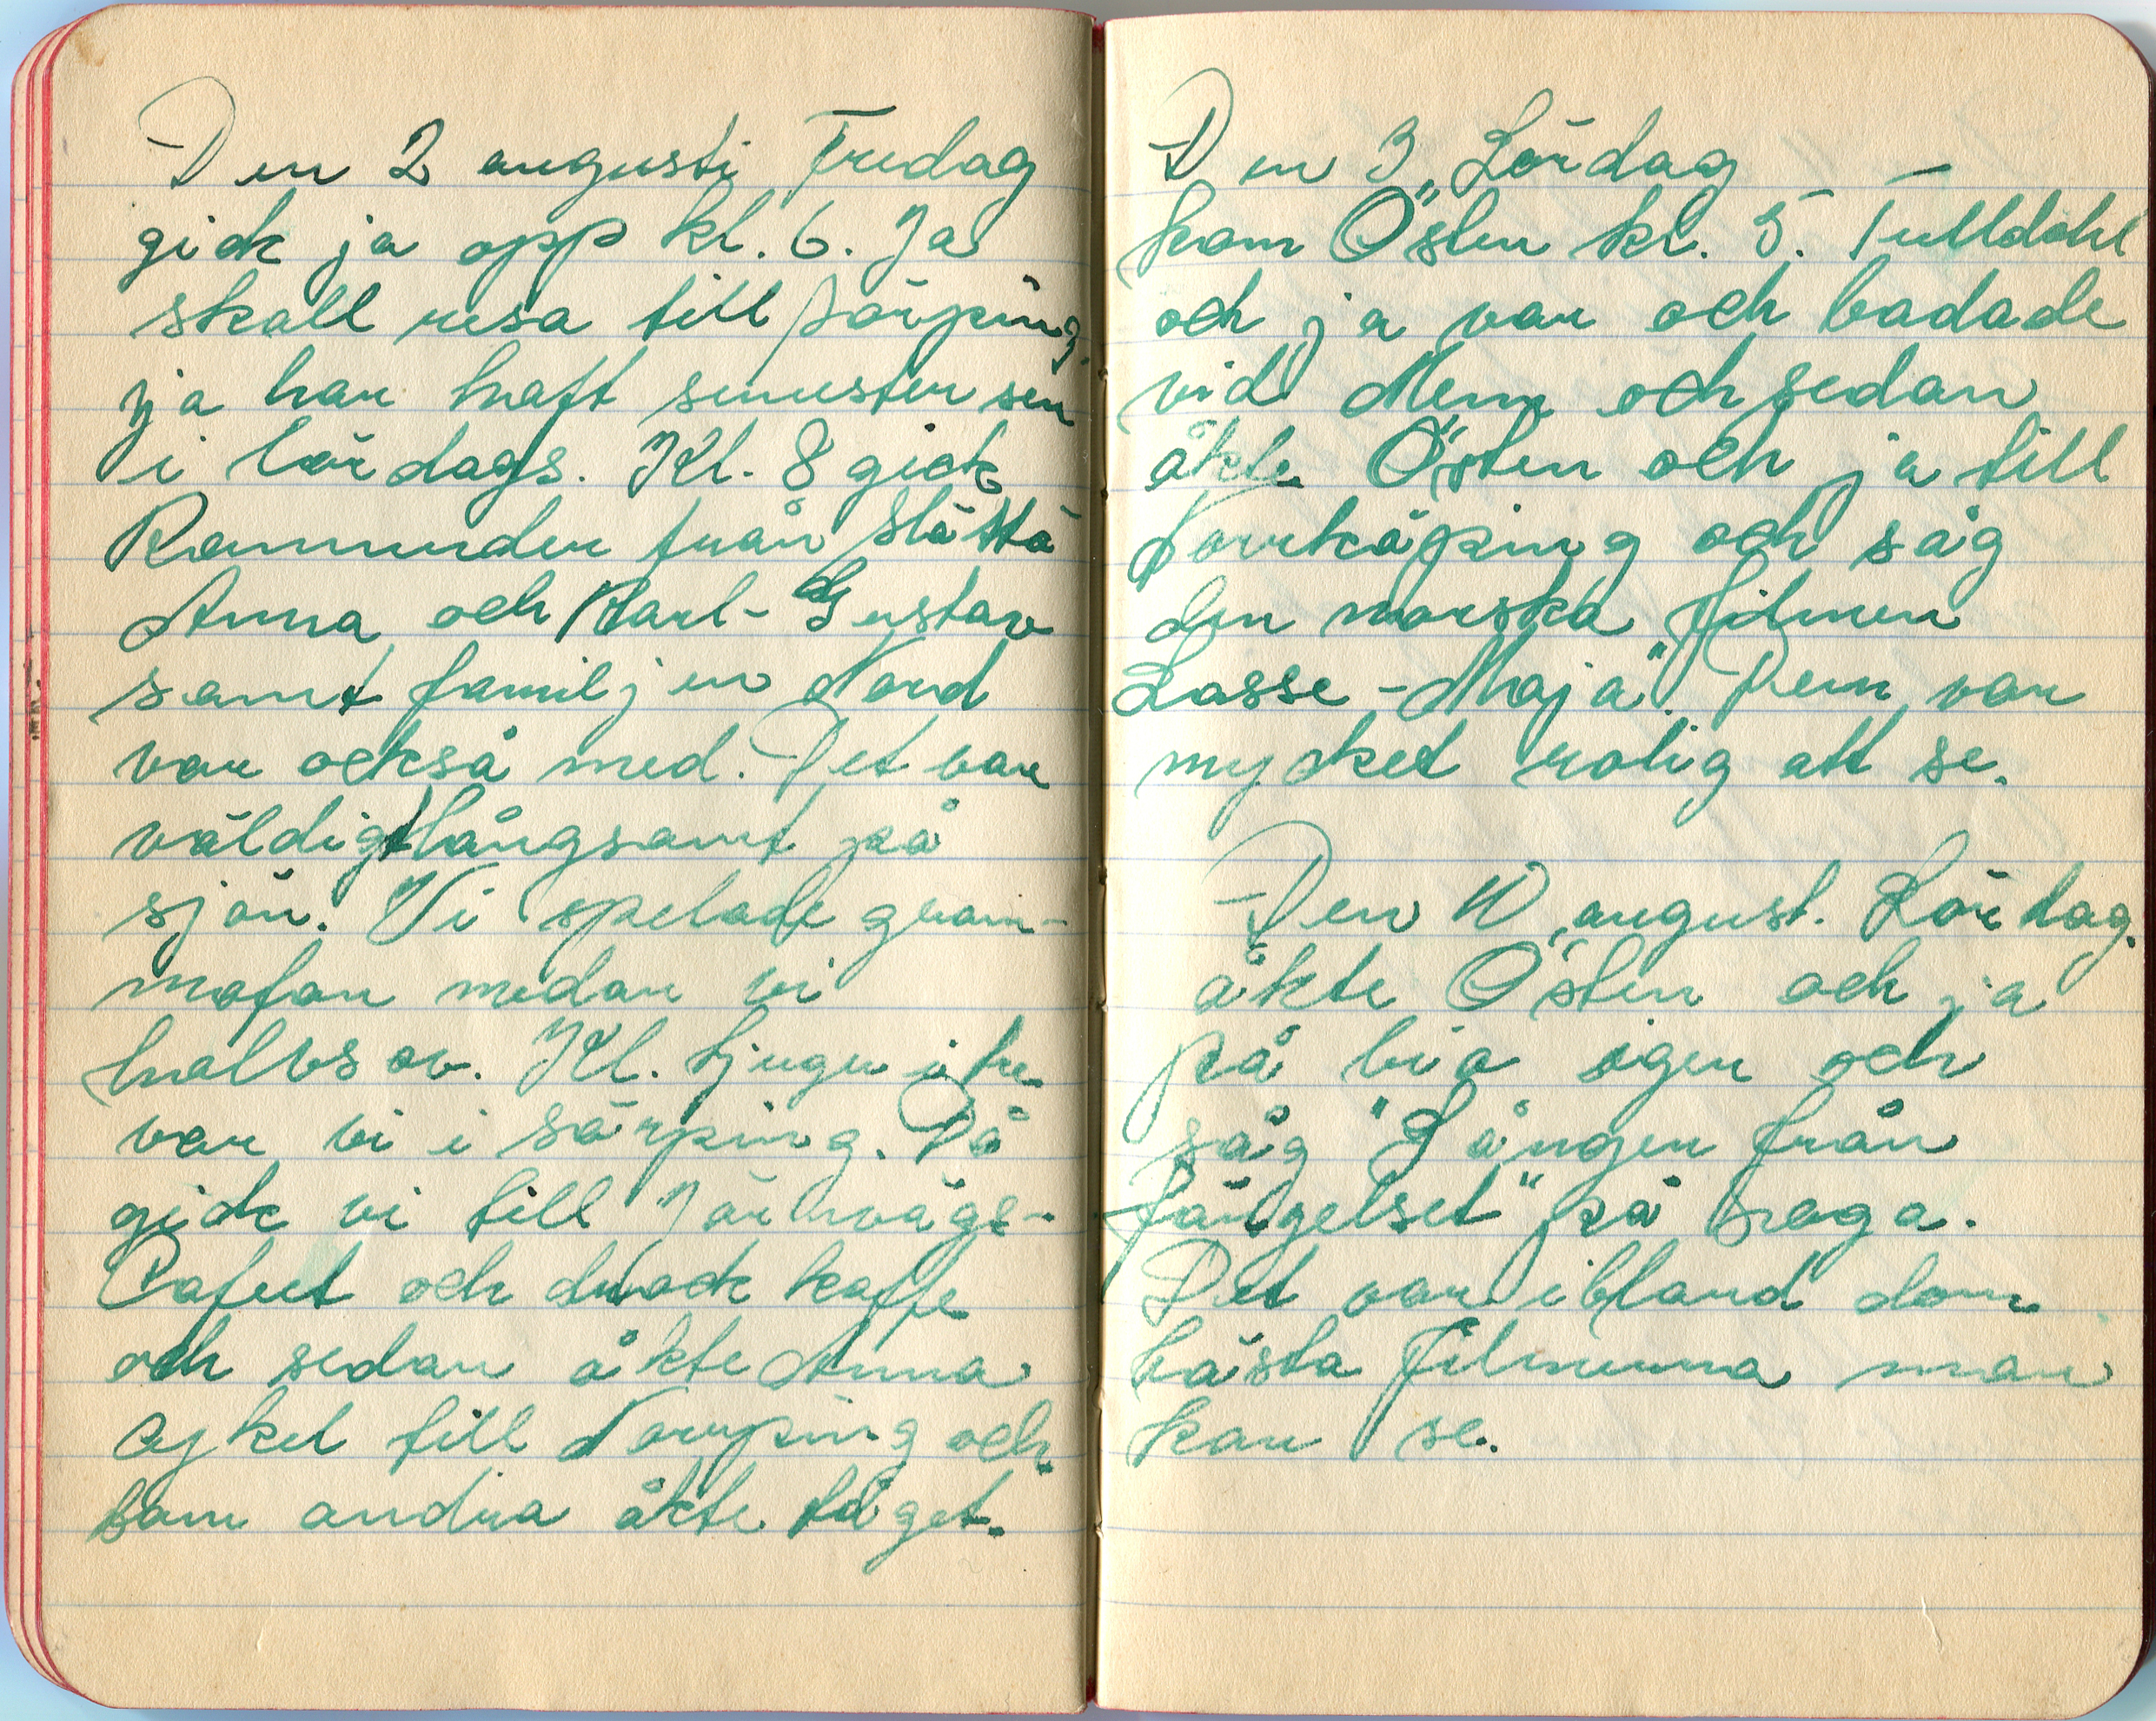 Den 2 augusti Fredag
gick ja opp kl. 6. Ja
skall resa till
ja har haft semester sen
i lördags. Kl. 8 gick
Ramunder från Slättö
Anna och Karl-Gustav
samt familjen Nord
var också med. Det var
väldigt långsamt på
sjön. Vi spelade gram-
mofon medan vi
halvsov. Kl. tjugu i tre
var vi i Sörping. Då
gick vi till Järnvägs-
Cafeet och drack kaffe
och sedan åkte Anna
cykel till Norrping och
dom andra åkte tåget.
Den 3 Lördag
kom Östen kl. 5.
och ja var och badade
vid Mem och sedan
åkte Östen och ja till
Norrköping och såg
den norska filmen
Lasse-Maja". Den var
mycket rolig att se.
Den 10 august. Lördag.
åkte Östen och ja
på bio igen och
såg "Sången från
fängelset" på Saga.
Det var ibland dom
bästa filmerna man
kan se.